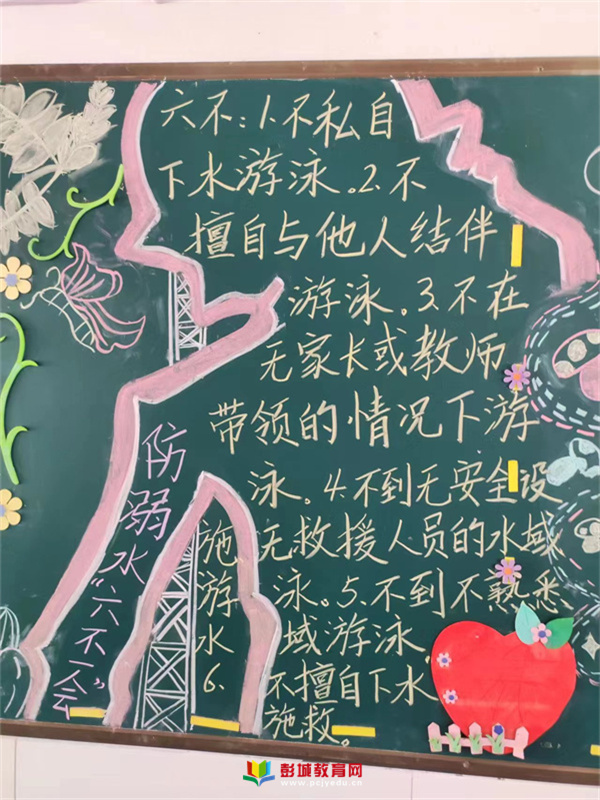 六不:1.不私自
下水游泳。2.不
擅自与他人结伴
游泳。3.不在
无家长或教师
带领的情况下游
泳。4.不到无安全设
施无救援人员的水域
游泳。5.不到不熟悉
水域游泳
6.不擅自下水
施救。
防溺水“六不一会”
彭城教育网